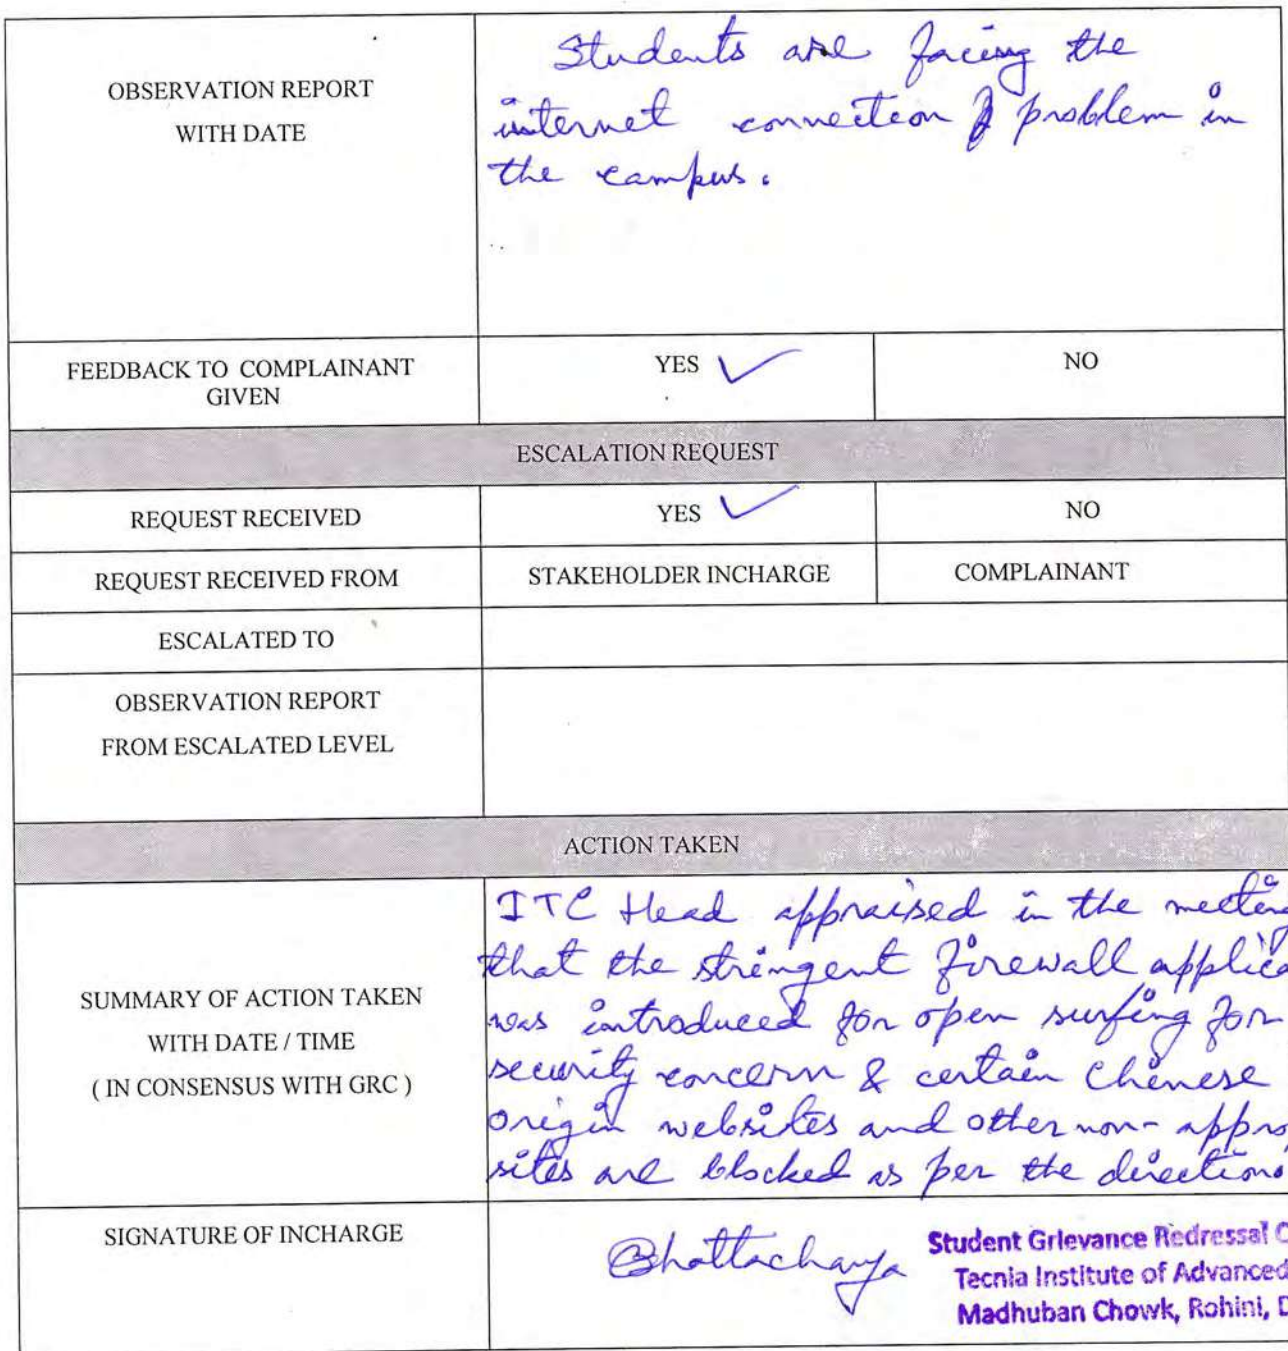 OBSERVATION REPORT
WITH DATE
Students are facing the
internet connection problem in
the campus.
FEEDBACK TO COMPLAINANT
GIVEN
YES ✓
NO
ESCALATION REQUEST
REQUEST RECEIVED
YES ✓
NO
REQUEST RECEIVED FROM
STAKEHOLDER INCHARGE
COMPLAINANT
ESCALATED TO
OBSERVATION REPORT
FROM ESCALATED LEVEL
ACTION TAKEN
SUMMARY OF ACTION TAKEN
WITH DATE / TIME
( IN CONSENSUS WITH GRC )
ITC Head appraised in the meeting
that the stringent firewall applica
was introduced for open surfing for
security concern & certain Chinese
origin websites and other non-appro
sites are blocked as per the directions
SIGNATURE OF INCHARGE
Bhattacharya
Student Grievance Redressal C
Tecnia Institute of Advanced
Madhuban Chowk, Rohini, D